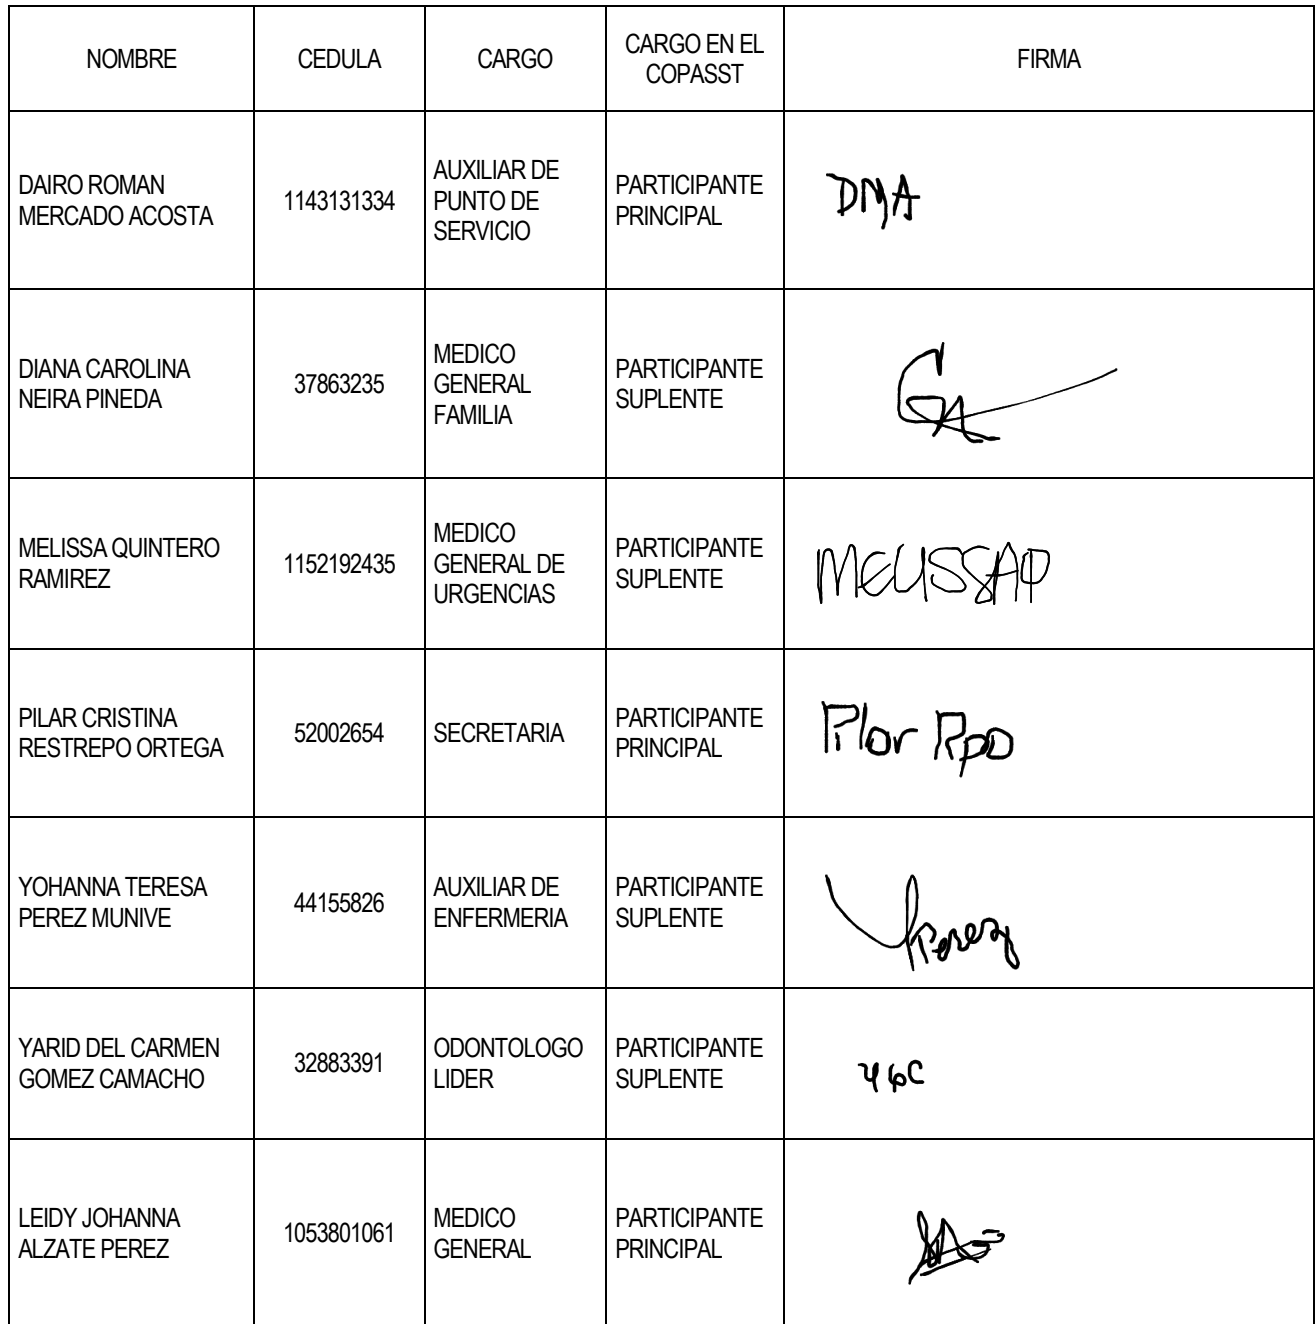 NOMBRE
CEDULA
CARGO
CARGO EN EL
COPASST
FIRMA
DAIRO ROMAN
MERCADO ACOSTA
1143131334
AUXILIAR DE
PUNTO DE
SERVICIO
PARTICIPANTE
PRINCIPAL
DMA
DIANA CAROLINA
NEIRA PINEDA
37863235
MEDICO
GENERAL
FAMILIA
PARTICIPANTE
SUPLENTE
MELISSA QUINTERO
RAMIREZ
1152192435
MEDICO
GENERAL DE
URGENCIAS
PARTICIPANTE
SUPLENTE
PILAR CRISTINA
RESTREPO ORTEGA
52002654
SECRETARIA
PARTICIPANTE
PRINCIPAL
Pilar Rpo
YOHANNA TERESA
PEREZ MUNIVE
44155826
AUXILIAR DE
ENFERMERIA
PARTICIPANTE
SUPLENTE
YPerez
YARID DEL CARMEN
GOMEZ CAMACHO
32883391
ODONTOLOGO
LIDER
PARTICIPANTE
SUPLENTE
YGC
LEIDY JOHANNA
ALZATE PEREZ
1053801061
MEDICO
GENERAL
PARTICIPANTE
PRINCIPAL